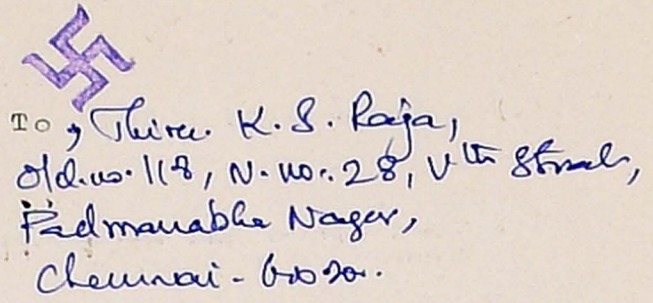 To, Thiru. K. S. Raja,
Old.no.118, N.no.28, Vth Street,
Padmanabha Nagar,
Chennai-600020.